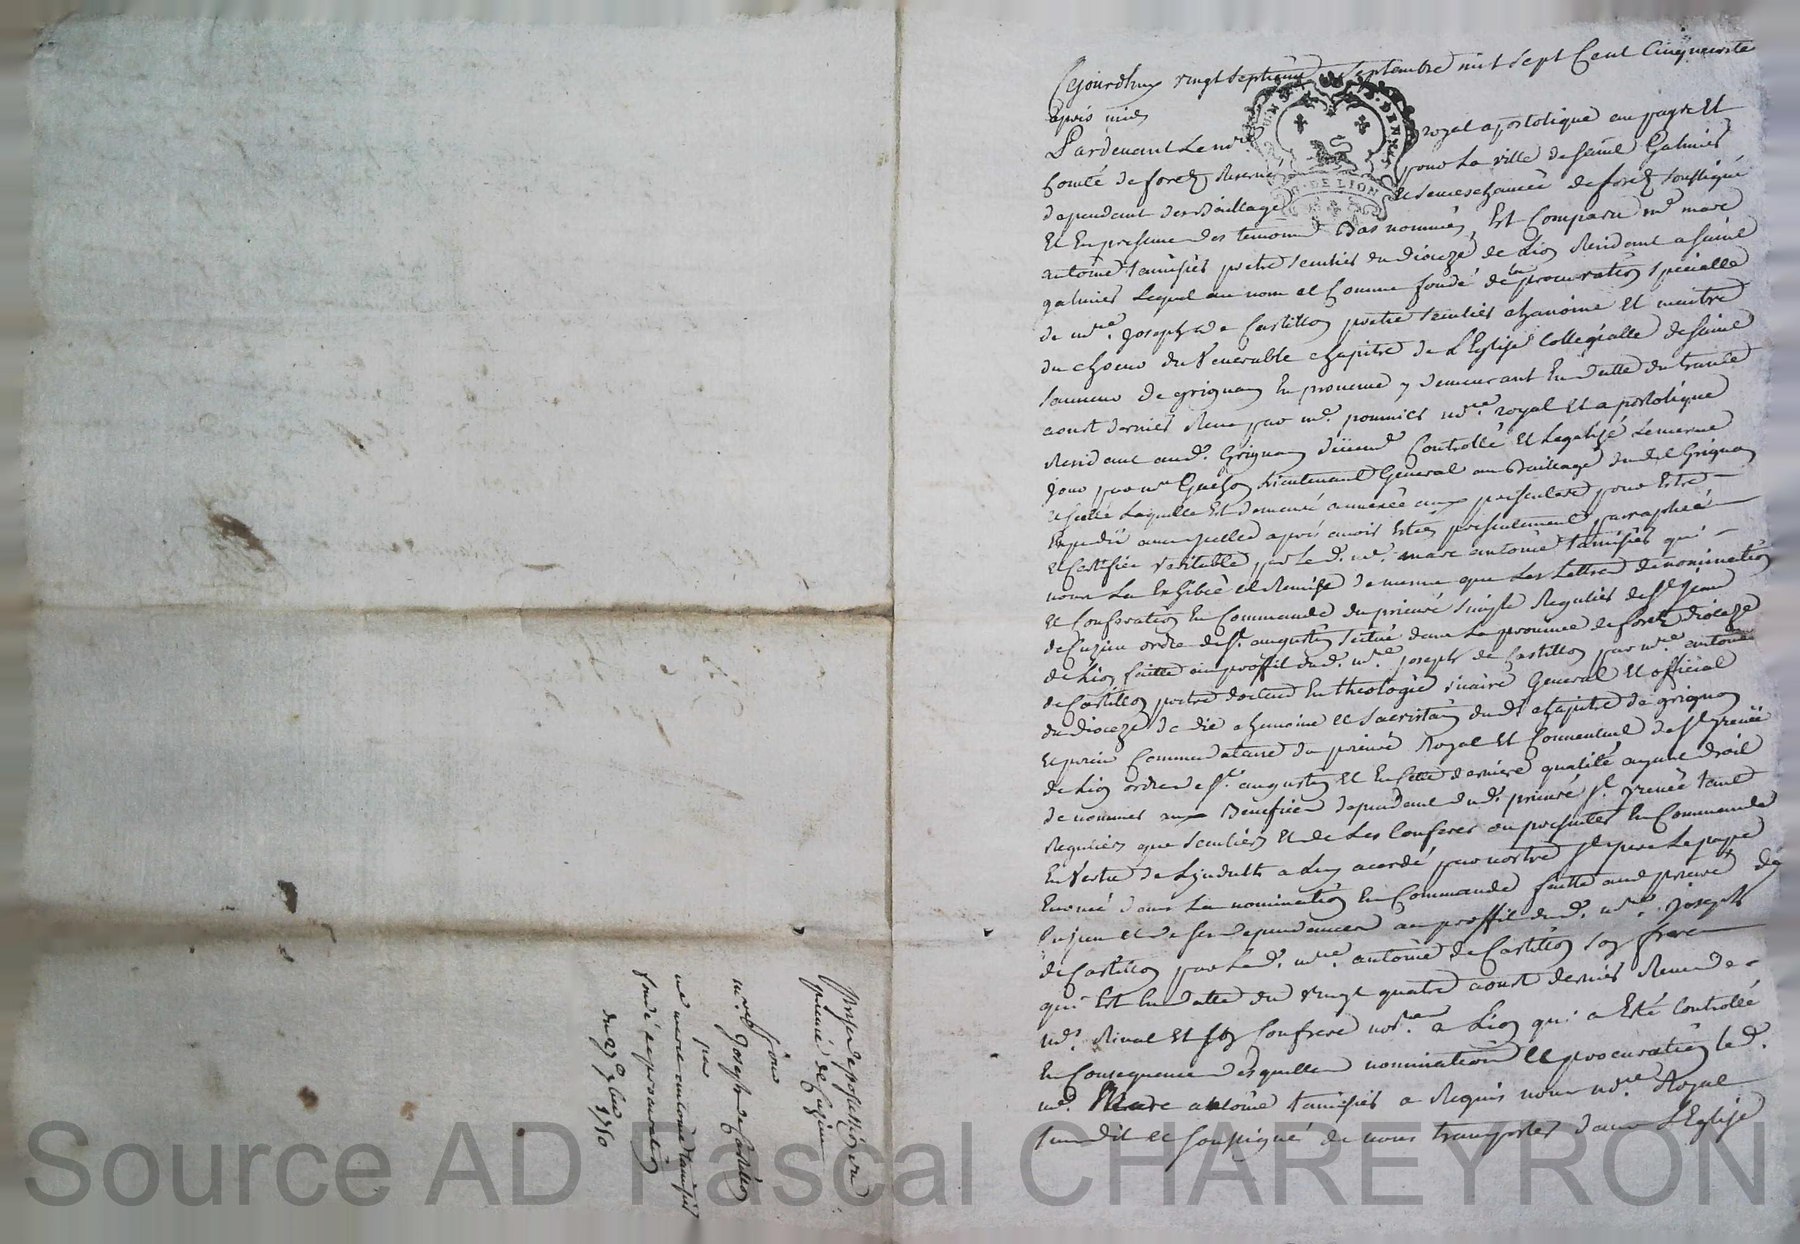 Cejourdhuy vingt septieme septembre mil sept Cent Cinquante
apres midy
Pardevant Le no.re royal apostolique au pays Et
Comté de forez Reservé pour La ville de Saint Galmier
dependant des Bailliage Et Seneschaucée de forez soussigné
Et En presence des temoins Bas nommés, Est Comparu m.e marc
antoine tamisier pretre seculier du dioceze de Lion Residant a Saint
galmier Lequel au nom et Comme fondé de la procuration specialle
de m.re Joseph de Castillon pretre seculier chanoine Et maitre
du choeur du Venerable chapitre de L'Eglise Collegialle de Saint
Sauveur de grignan En provence y demeurant En datte du trante
aoust dernier Receu par m.e pommier no.re royal Et apostolique
Residant aud. Grignan Controllé Et Legalizé Lememe
jour par m.re Lieutenant General au Bailliage dud. Grignan
et scellé Laquelle Est demeuré annexée aux presentes pour Estre
Expedié avec ycelles apres avoir Esté presentement paraphée
et Certifiée veritable par Le d. m.e marc antoine tamisier qui
nous La Exhibée et Remise de meme que Les Lettres de nomination
et Conferation En Commande du prieuré simple Regulier de S.t Jean
de Cuzieu ordre de S.t augustin scitué dans La province de forez dioceze
de Lion faitte au proffit dud. m.re Joseph de Castillon par m.re antoine
de Castillon pretre docteur En theologie vicaire General Et official
du dioceze de die chanoine et sacristain dud. chapitre de grignan
Et prieur Commandataire du prieuré Royal Et Conventuel de S.t Irenée
de Lion ordre de S.t augustin Et En cette derniere qualité ayant droit
de nommer aux Benefices dependant dud. prieuré S.t Irenée tant
Reguliers que seculiers Et de Les Conferer ou presenter En Commande
En Vertu de Lyndult a Luy acordé par nostre S.t pere Le pape
Enoncé dans La nomination En Commande faitte aud prieuré de
Cuzieu et de ses dependances au proffit dud. m.re Joseph
de Castillon par Le d. m.re antoine de Castillon son frere
qui Est En datte du vingt quatre aoust dernier Receu de
m.e Rival Et son Confrere no.res a Lion qui a Esté Controllé
En Consequence desquelles nomination et procuration le d.
m.e Marc antoine tamisier a Requis nous no.re Royal
susdit et soussigné de nous transporter dans L'Eglise
G. DE LION
Prise de possession du
prieuré de Cuzieu
pour
m.re Joseph de Castillon
par
m.e marc antoine tamisier
fondé de procuration
du 27 7bre 1750
Source AD Pascal CHAREYRON